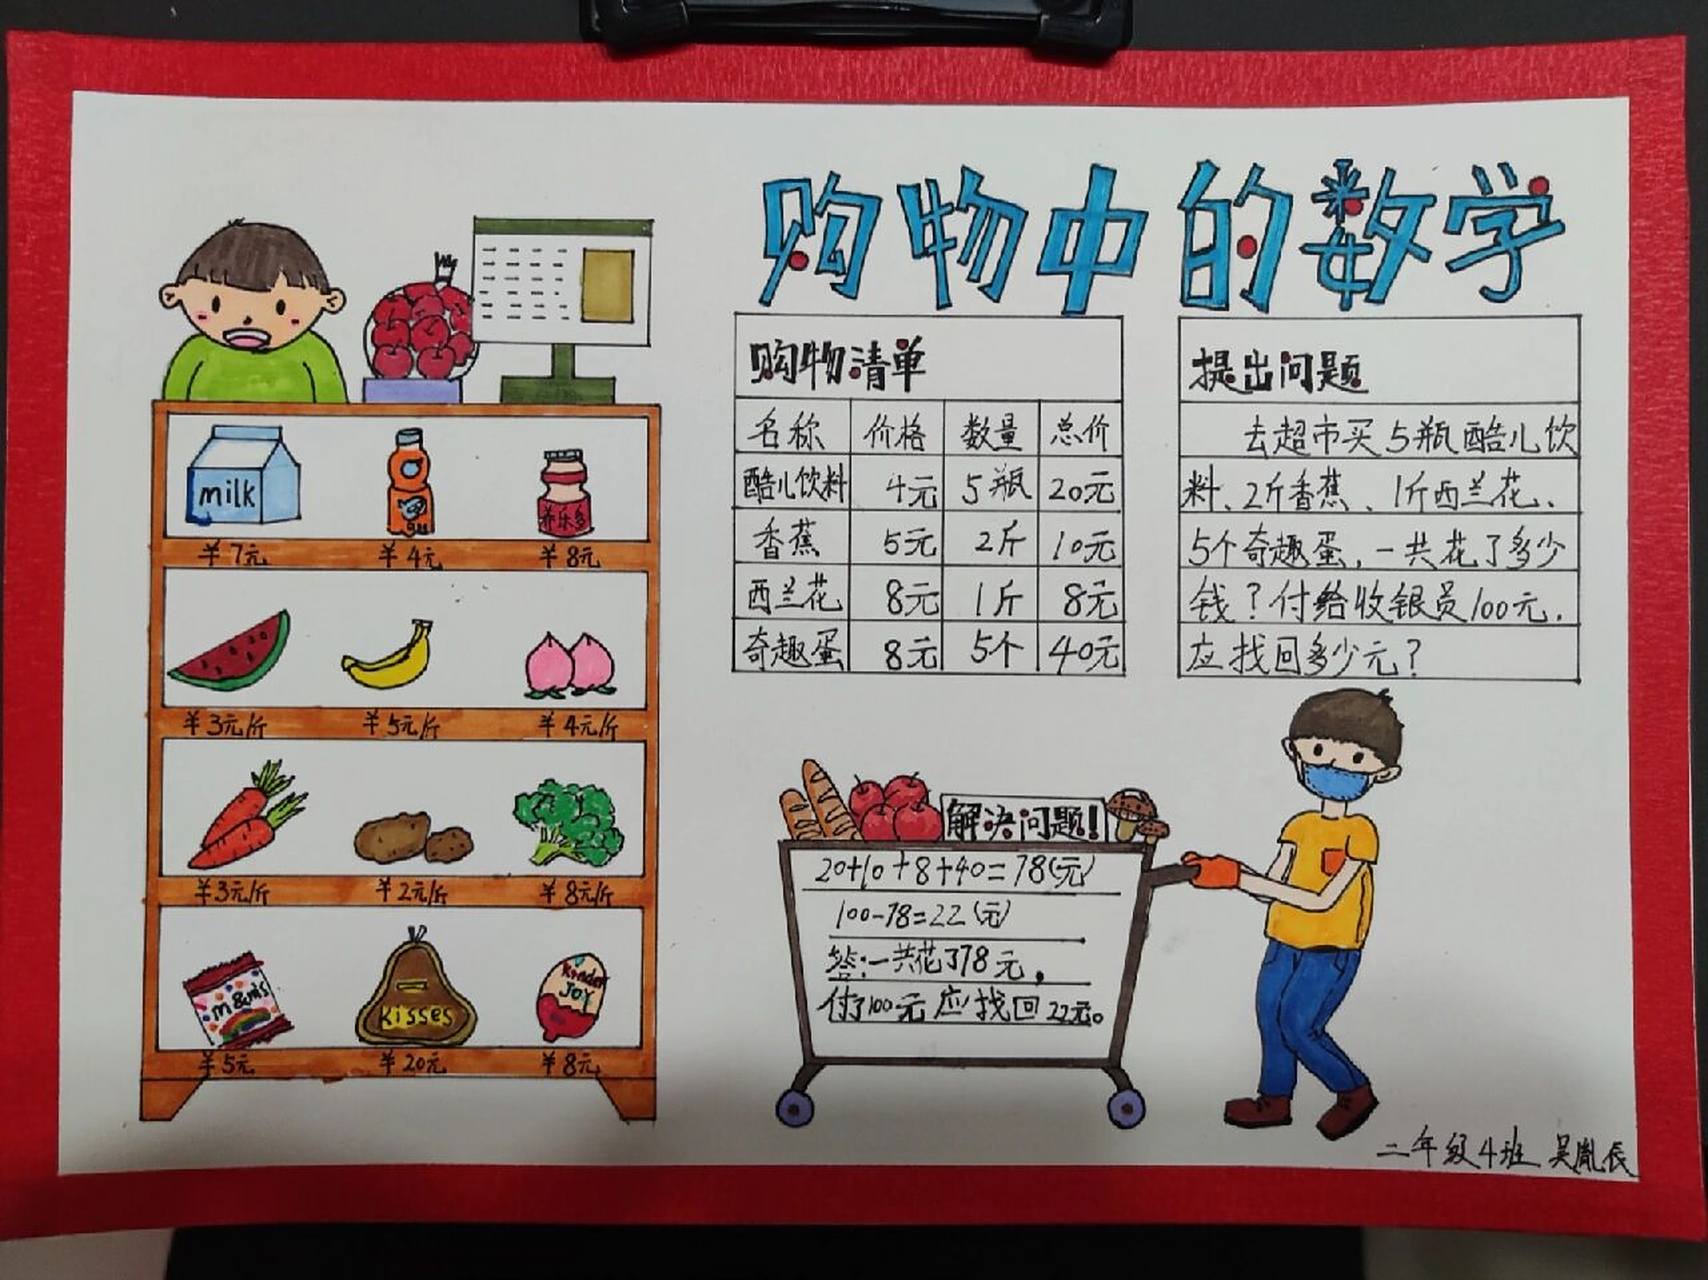 购物中的数学
milk
养乐多
￥7元 ￥4元 ￥8元
￥3元/斤 ￥5元/斤 ￥4元/斤
￥3元/斤 ￥2元/斤 ￥8元/斤
m&m's
Kisses
Kinder
JOY
￥5元 ￥20元 ￥8元
购物清单
名称 价格 数量 总价
酷儿饮料 4元 5瓶 20元
香蕉 5元 2斤 10元
西兰花 8元 1斤 8元
奇趣蛋 8元 5个 40元
提出问题
去超市买5瓶酷儿饮
料、2斤香蕉、1斤西兰花、
5个奇趣蛋,一共花了多少
钱?付给收银员100元,
应找回多少元?
解决问题!
20+10+8+40=78(元)
100-78=22(元)
答:一共花了78元,
付了100元应找回22元。
二年级4班 吴胤辰